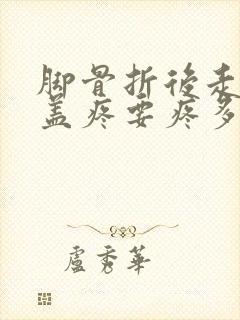 脚骨折後走
盖疼要疼多
盧秀華